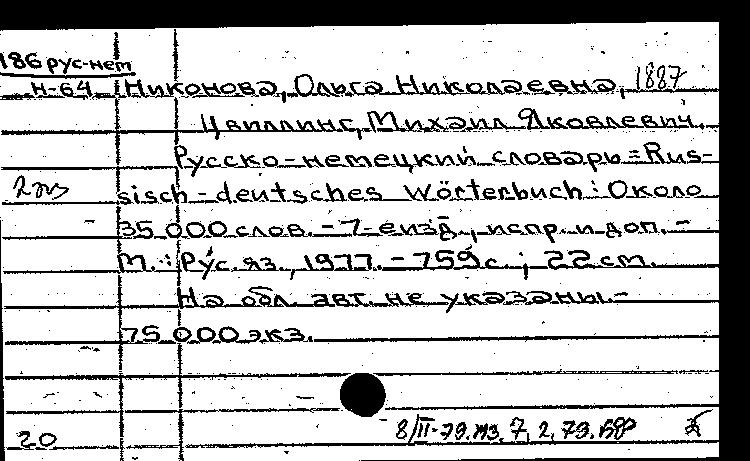 186 рус-нем
Н-64 Никонова, Ольга Николаевна, 1887
Цвиллинг, Михаил Яковлевич.
Русско-немецкий словарь = Rus-
2 экз sisch-deutsches Wörterbuch : Около
35 000 слов. - 7-е изд., испр. и доп. -
М. : Рус. яз., 1977. - 759 с. ; 22 см.
На обл. авт. не указаны. -
75 000 экз.
20 8/II-79. 7, 2, 79.